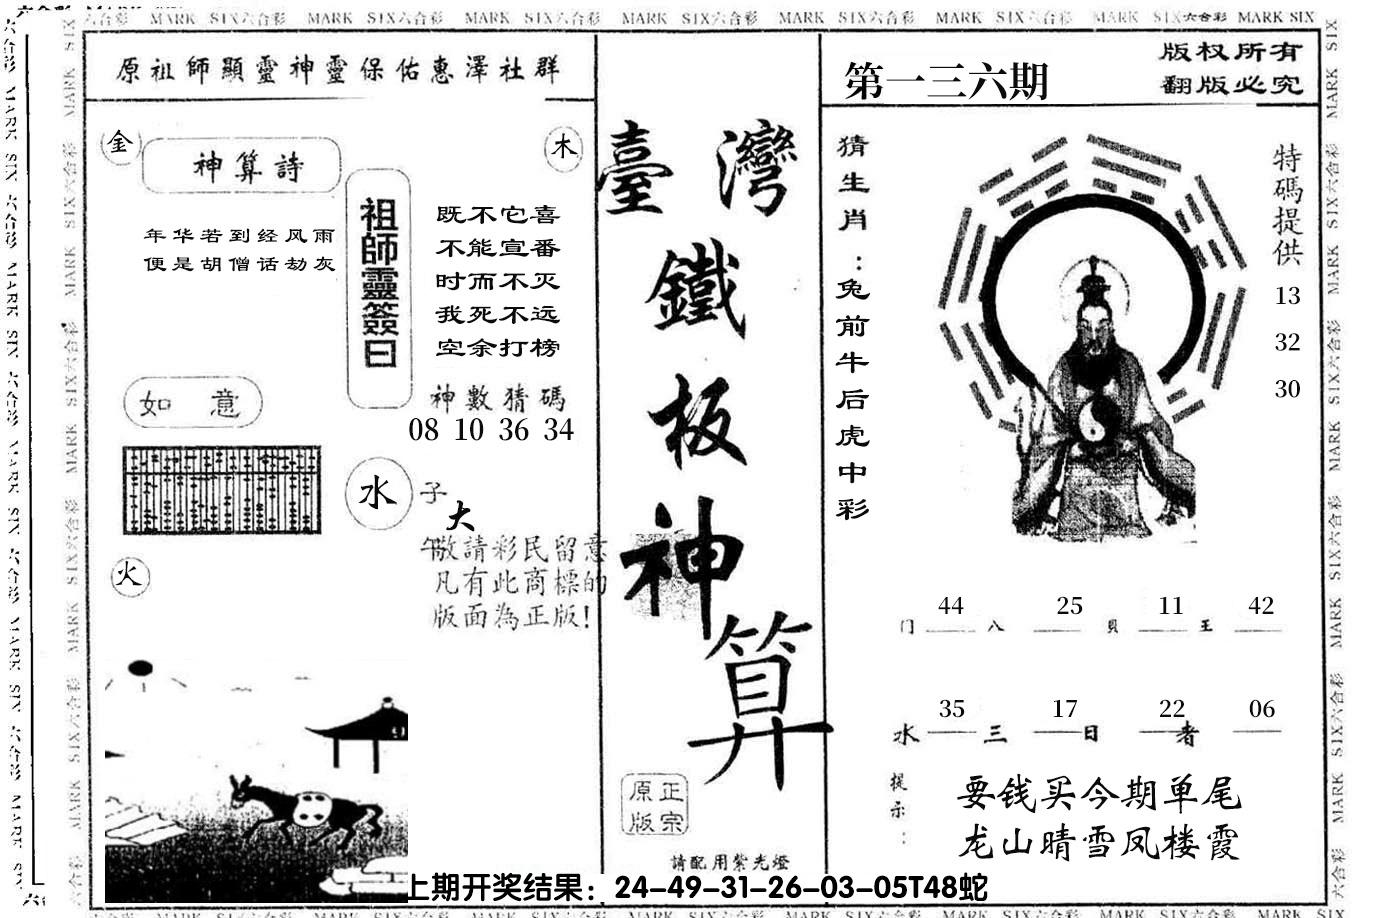 原祖師顯靈神靈保佑惠澤社群
金
神算詩
木
年华若到经风雨
便是胡僧话劫灰
祖師靈簽曰
既不它喜
不能宣番
时而不灭
我死不远
空余打榜
如 意
神數猜碼
08 10 36 34
水
子
大
午
敬請彩民留意
凡有此商標的
版面為正版!
火
臺灣
鐵
板
神
算
原正
版宗
請配用紫光燈
第一三六期
版权所有
翻版必究
猜生肖:兔前牛后虎中彩
特碼提供
13
32
30
44 25 11 42
门 八 貝 王
35 17 22 06
水 三 日 者
提示:
要钱买今期单尾
龙山晴雪凤楼霞
上期开奖结果：24-49-31-26-03-05T48蛇
MARK SIX六合彩 MARK SIX六合彩 MARK SIX六合彩 MARK SIX六合彩 MARK SIX六合彩 MARK SIX六合彩 MARK SIX六合彩 MARK SIX